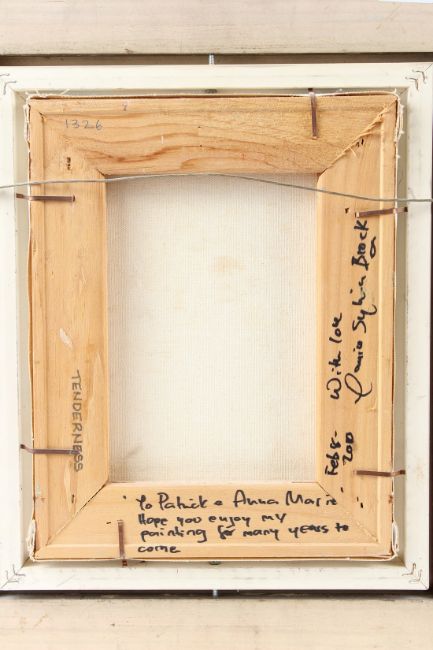 1326
TENDERNESS
"To Patrick & Anna Marie"
Hope you enjoy my
painting for many years to
come
Feb 8- With love
Sylvia Brock